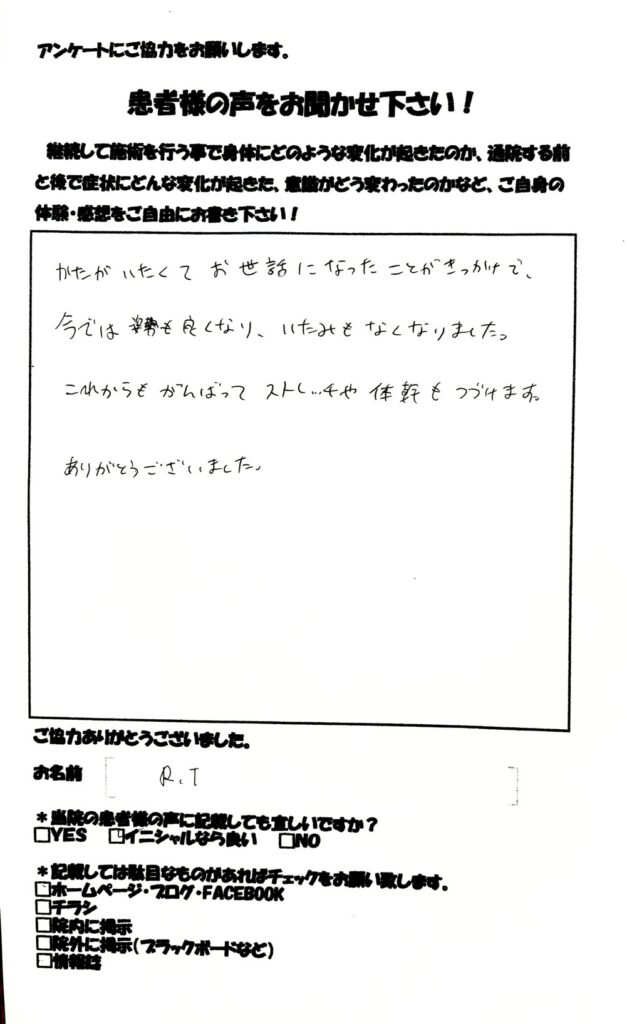 アンケートにご協力をお願いします。
患者様の声をお聞かせ下さい！
継続して施術を行う事で身体にどのような変化が起きたのか、通院する前
と後で症状にどんな変化が起きた、意識がどう変わったのかなど、ご自身の
体験・感想をご自由にお書き下さい！
かたがいたくてお世話になったことがきっかけで、
今では姿勢も良くなり、いたみもなくなりました。
これからもがんばってストレッチや体幹もつづけます。
ありがとうございました。
ご協力ありがとうございました。
お名前 R.T
＊当院の患者様の声に記載しても宜しいですか？
□YES □イニシャルなら良い □NO
＊記載しては駄目なものがあればチェックをお願い致します。
□ホームページ・ブログ・FACEBOOK
□チラシ
□院内に掲示
□院外に掲示（ブラックボードなど）
□情報誌